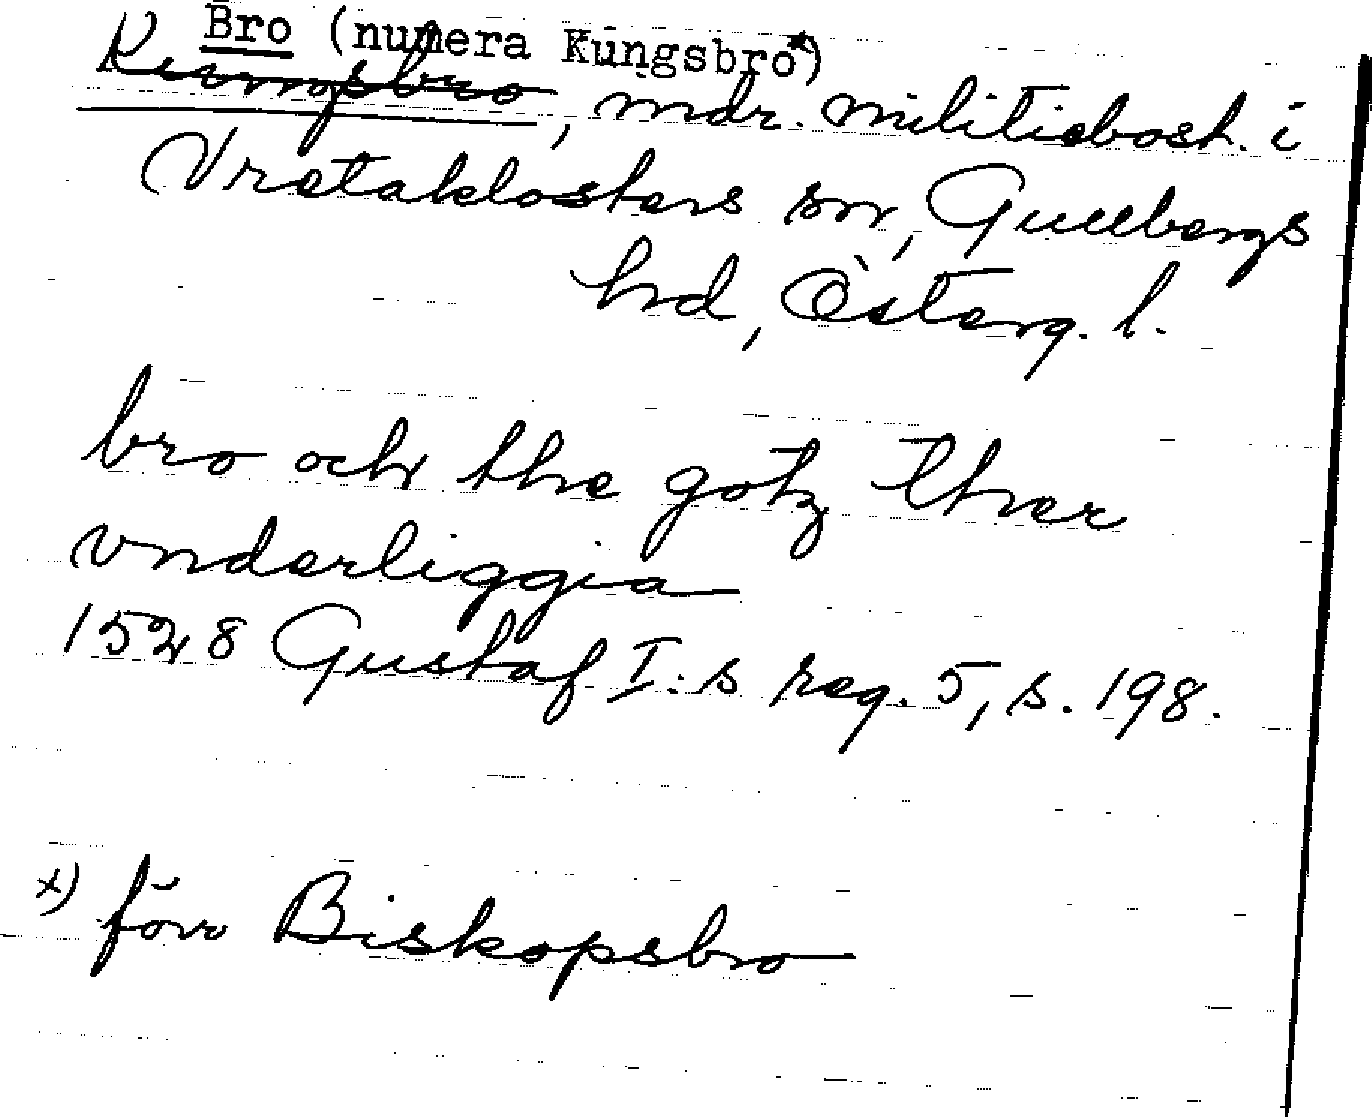 Bro (numera Kungsbro*)
Kungsbro, mdr. militiebost. i
Vretaklosters sn, Gullbergs
hd, Österg. l.
bro och the gotz ther
vnderliggia
1528 Gustaf I:s reg. 5, s. 198.
x) förr Biskopsbro